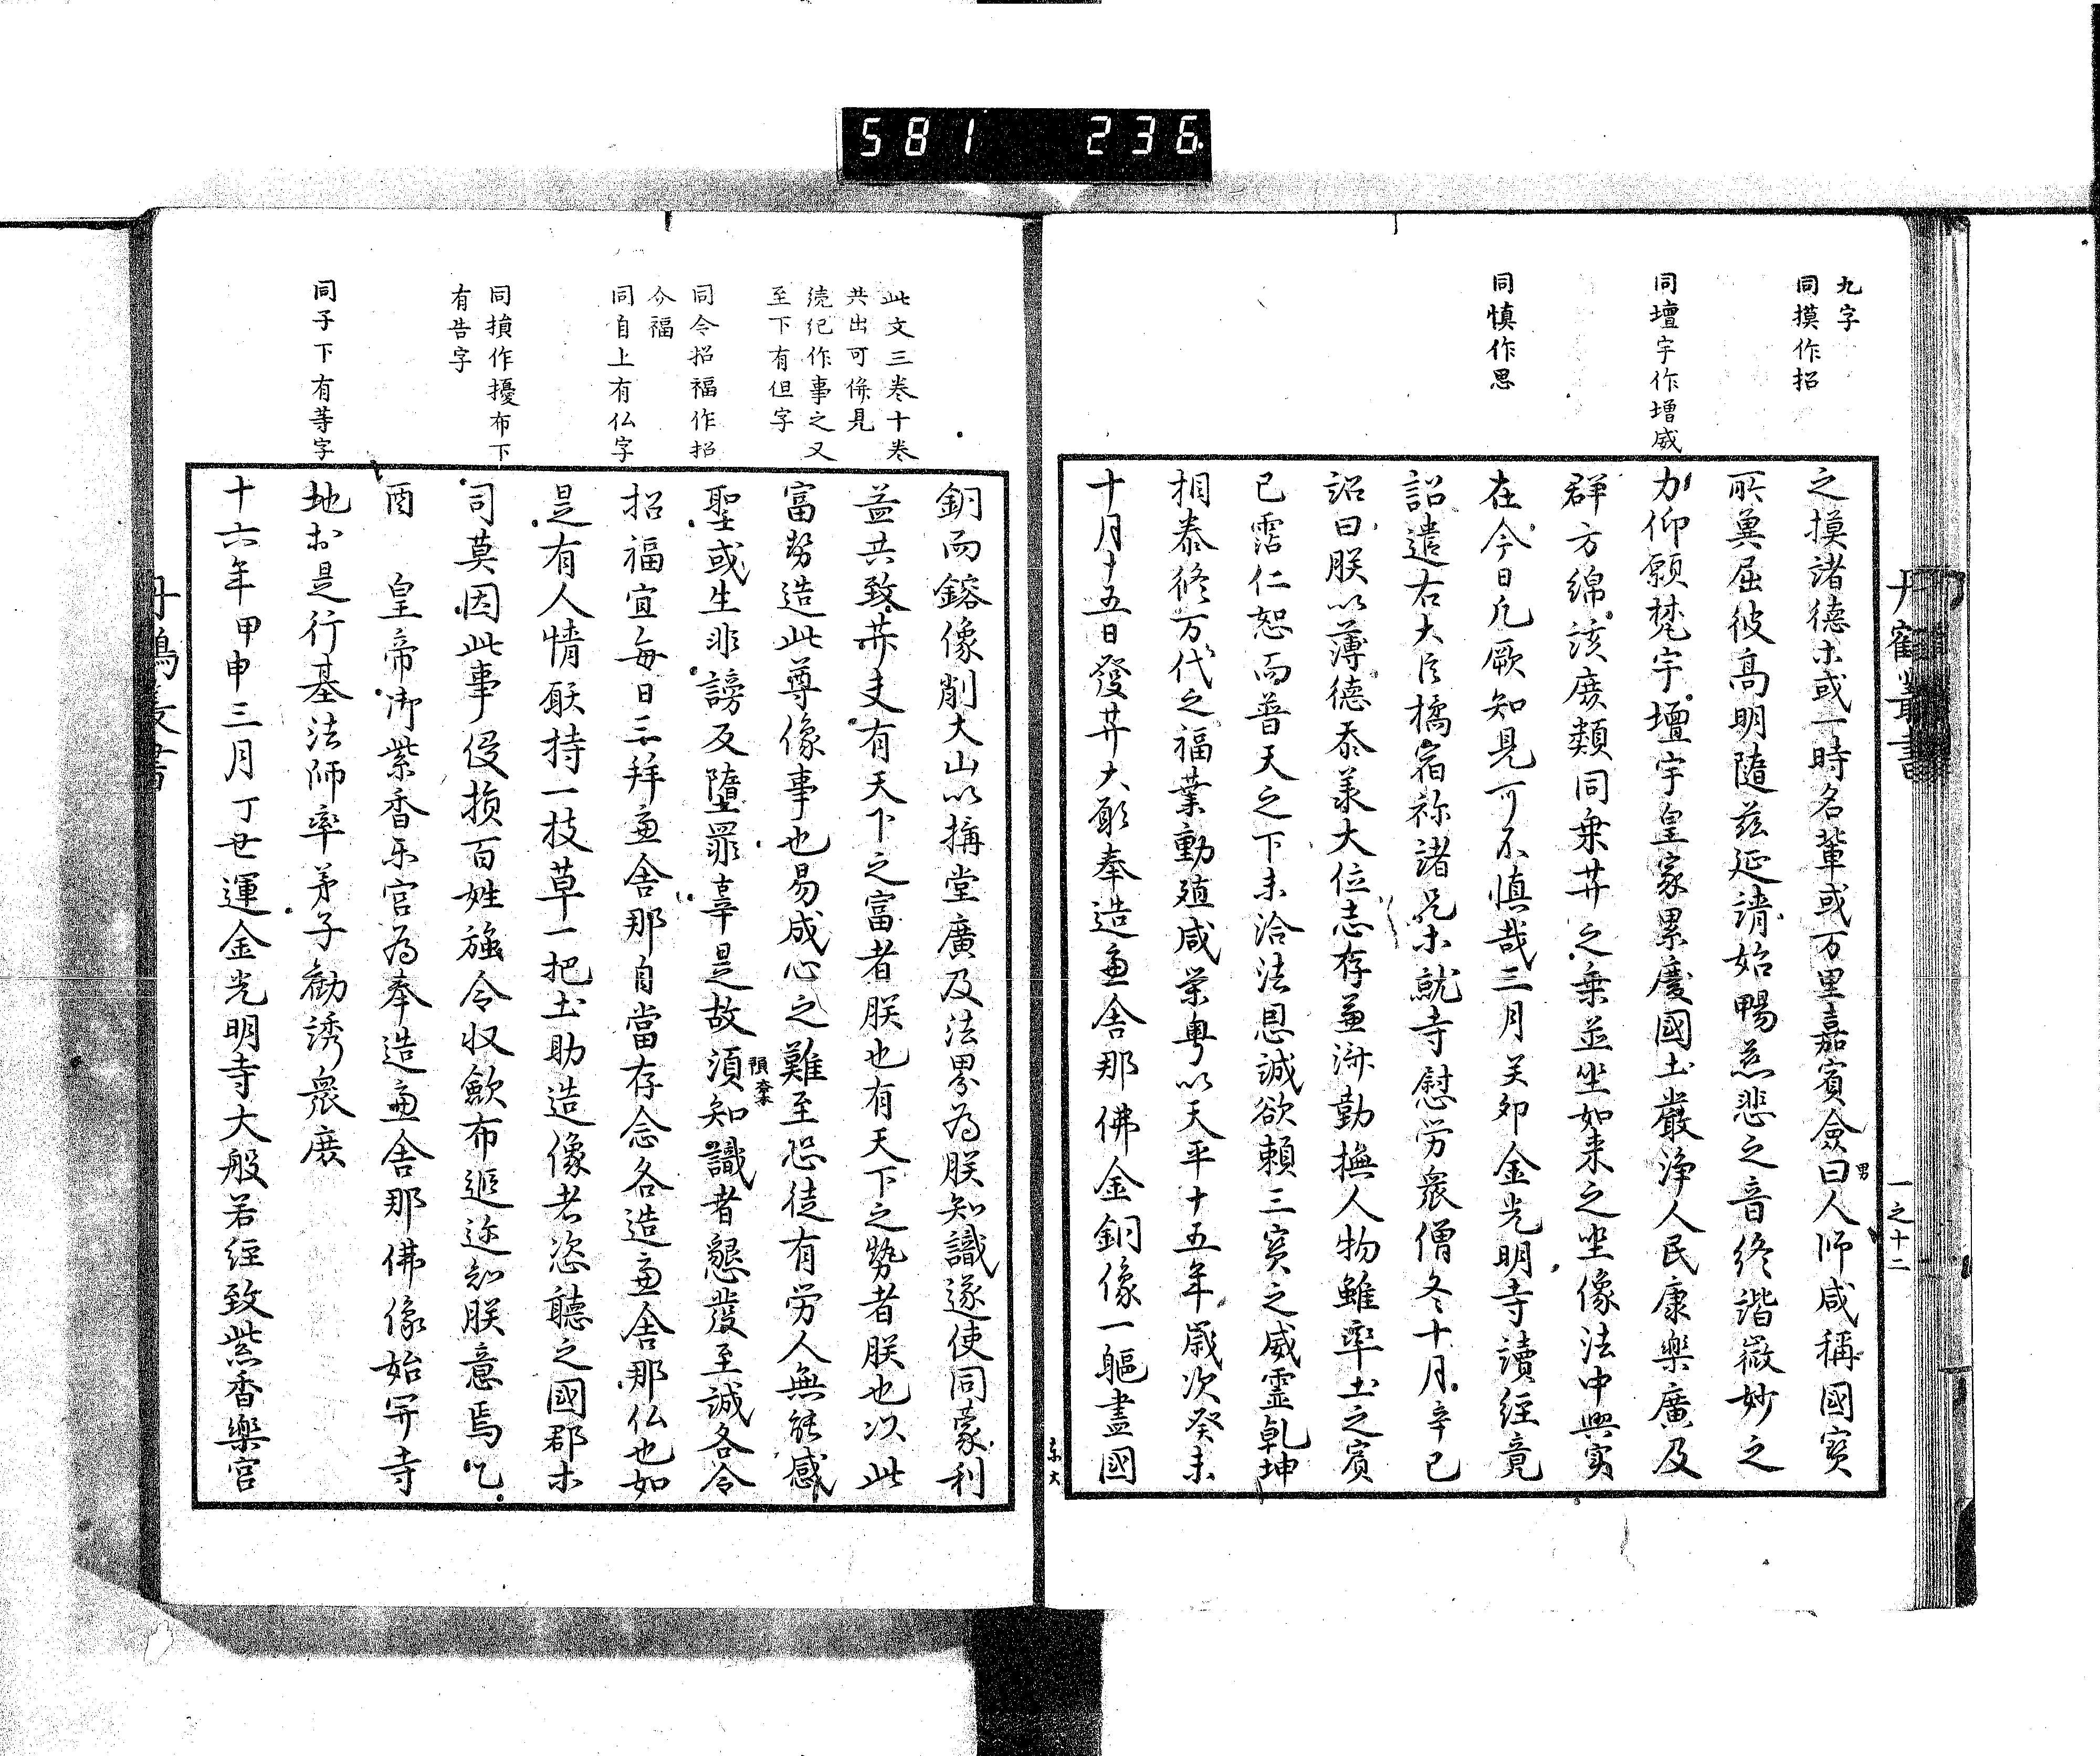 581 236
九字
同摸作招
同壇宇作増威
同慎作思
之摸諸德ホ或一時名輩或万里嘉賓僉曰人師咸稱國寶
男
所冀屈彼高明隨兹延請始暢慈悲之音終諧微妙之
力仰願梵宇壇宇皇家累慶國土嚴浄人民康樂廣及
群方綿該廣類同乗𦬇之乗並坐如来之坐像法中興實
在今日凡厥知見可不慎哉三月癸卯金光明寺讀經竟
詔遣右大臣橘宿祢諸兄ホ就寺慰労衆僧冬十月辛巳
詔曰朕以薄德忝承大位志存兼済勤撫人物雖率土之賓
已霑仁恕而普天之下未洽法恩誠欲頼三寳之威霊乾坤
相泰修万代之福業動殖咸榮粤以天平十五年歳次癸未
十月十五日發𦬇大願奉造盧舎那佛金銅像一軀盡國
丹鶴叢書
一之十二
此文三巻十巻
共出可併見
続紀作事之又
至下有但字
同令招福作招
介福
同自上有仏字
同損作擾布下
有告字
同子下有等字
銅而鎔像削大山以搆堂廣及法界為朕知識遂使同蒙利
益共致𦬇夫有天下之富者朕也有天下之勢者朕也以此
富勢造此尊像事也易成心之難至恐徒有労人無能感
聖或生誹謗反墮罪辜是故須知識者懇發至誠各令
預
招福宜毎日三拜盧舎那自當存念各造盧舎那仏也如
是有人情願持一枝草一把土助造像者恣聴之國郡ホ
司莫因此事侵損百姓強令収歛布遐迩知朕意焉乙
酉 皇帝御紫香樂宮為奉造盧舎那佛像始開寺
地於是行基法師率弟子勧誘衆庶
十六年甲申三月丁丑運金光明寺大般若経致紫香樂宮
丹鶴叢書